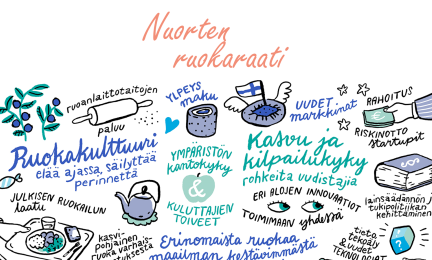 Nuorten
ruokaraati
ruoanlaittotaitojen
paluu
Ruokakulttuuri
elää ajassa, säilyttää
perinnettä
JULKISEN RUOKAILUN
laatu
kasvi-
pohjainen
YLPEYS
maku
YMPÄRISTÖN
kantokyky
&
KULUTTAJIEN
TOIVEET
UUDET
markkinat
Kasvu ja
kilpailukyky
rohkeita uudistajia
ERI ALOJEN INNOVAATIOT
TOIMIMAAN yhdessä
RAHOITUS
RISKINOTTO
startupit
lainsäädännön j
tukipolitiikan
kehittäminen
tieto
tekoäly
& uudet
TEKNOLOGIAT
Erinomaista ruokaa
maailman kestävimmästä